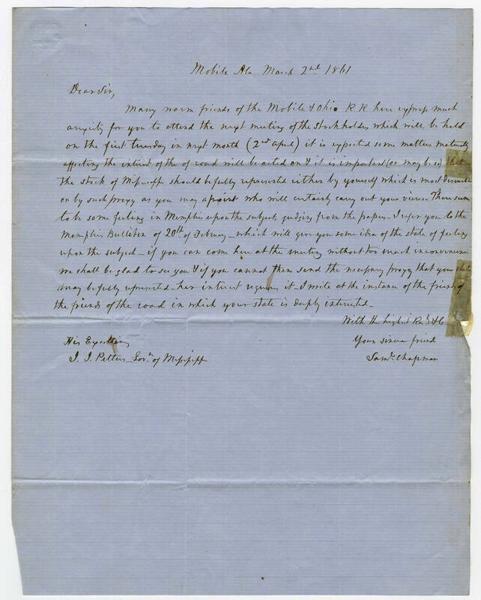 Mobile Ala March 2nd 1861
Dear Sir,
Many warm friends of the Mobile & Ohio R.R. here express much
anxiety for you to attend the next meeting of the stockholders which will be held
on the first tuesday in next month (2nd April) it is expected some matters materially
affecting the interest of the rail road will be acted on & it is important (or may be so) that
the stock of Mississippi should be fully represented either by yourself which is most desirable
or by such proxy as you may appoint who will certainly carry out your views. There seems
to be some feeling in Memphis upon the subject judging from the papers I refer you to the
Memphis Bulletin of 20th of February which will give you some idea of the state of feeling
upon the subject if you can come here at the meeting without too much inconvenience
we shall be glad to see you & if you cannot then send the necessary proxy that your state
may be fully represented her interest requires it I write at the instance of the friends of
the friends of the road in which your state is deeply interested.
With the highest &c
Your sincere friend
Saml. Chapman
His Excellency
J. J. Pettus Govr. of Mississippi